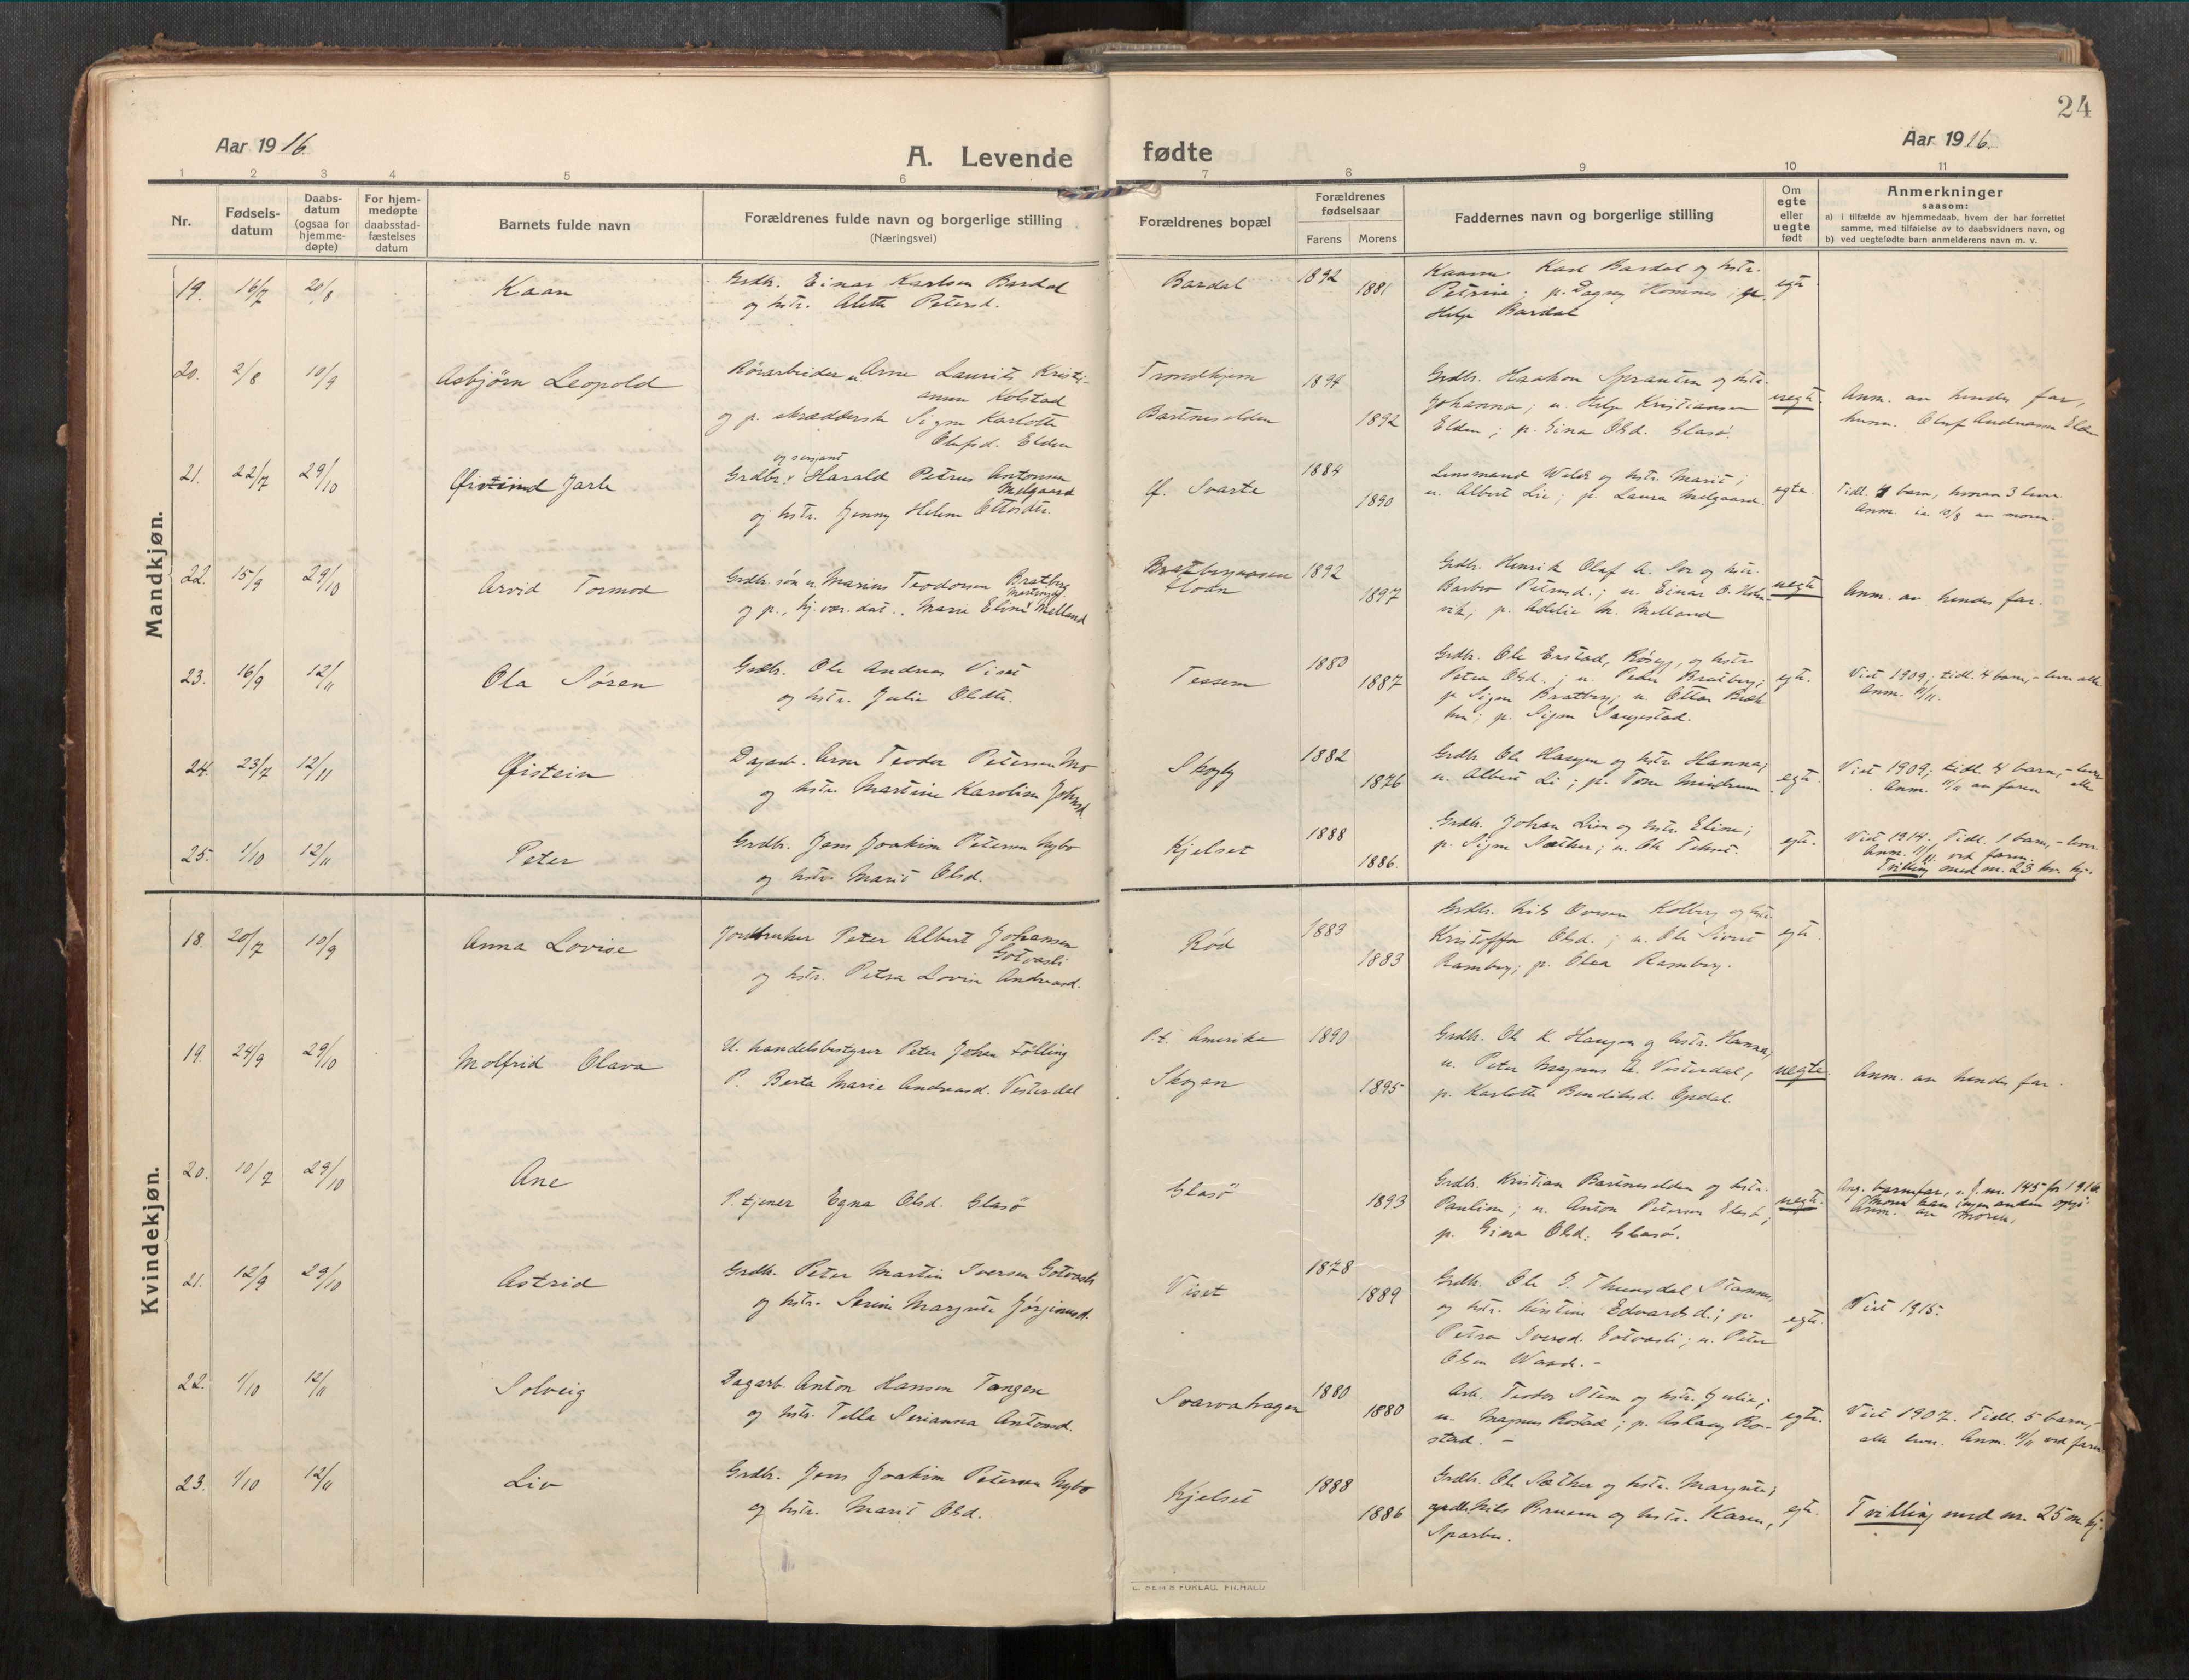 24
Aar 1916.
A. Levende fødte
Aar 1916.
1 2 3 4 5 6 7 8 9 10 11
Nr.
Fødsels-
datum
Daabs-
datum
(ogsaa for
hjemme-
døpte)
For hjem-
medøpte
daabsstad-
fæstelses
datum
Barnets fulde navn
Forældrenes fulde navn og borgerlige stilling
(Næringsvei)
Forældrenes bopæl
Forældrenes
fødselsaar
Farens Morens
Faddernes navn og borgerlige stilling
Om
egte
eller
uegte
født
Anmerkninger
saasom:
a) i tilfælde av hjemmedaab, hvem der har forrettet
samme, med tilføielse av to daabsvidners navn, og
b) ved uegtefødte barn anmelderens navn m. v.
Mandkjøn.
19. 16/7 20/8 Kaan
Grdbr. Einar Karlsen Bardal
og hstr. Aletta Petersd.
Bardal 1892 1881
Karl Bardal og hstr.
Petrine; p. Dagny
Helge Bardal
egte
20. 2/8 10/9 Asbjørn Leopold
Rørarbeider u. Arne Laurits Kristi-
Kolstad
og p. Signe Karlotte
Olufsd. Elden
Trondhjem
Bartneselden
1894 1892
Grdbr. Haakon og hstr.
Johanna; u. Helge Kristiansen
Elden; p. Gina Olsd. Glasø.
uegte
Anm. av hendes far,
Oluf Andreassen Elden
21. 22/7 29/10 Øistein Jarle
og sersjant
Grdbr. Harald Petrus Antonsen
Melgaard
og hstr. Jenny Helene Ottosdtr.
Svarte 1884 1890
Lensmand og hstr. Marit;
u. Albert Lie; p. Laura Melgaard.
egte
Tidl. 4 barn, hvorav 3 lever
Anm. 10/8 av moren.
22. 15/9 29/10 Arvid Tormod
Grdbr. søn u. Marius Teodorsen Bratberg
Martinsd.
og p., hj.vær. dat., Marie Eline Melland
Bratbergaasen
1892 1897
Grdbr. Henrik Olaf A. og hstr.
Barbro Petersd.; u. Einar O. Holm-
vik; p. Adelie M. Melland
uegte
Anm. av hendes far.
23. 16/9 12/11 Ola Søren
Grdbr. Ole Andreas Viset
og hstr. Julie Olsdtr.
Tessem 1880 1887
Grdbr. Ole Erstad, og hstr.
Petra Olsd.; u. Peder Bratberg;
p. Signe Bratberg; u. Ottar
p. Signe
egte.
Viet 1909; tidl. 4 barn, - lever alle
Anm. 11/11.
24. 23/7 12/11 Øistein
Dagarb. Arne Teodor Petersen Mo
og hstr. Martine Karoline Johnsd.
Skogly 1882 1876
Grdbr. Ole Haugen og hstr. Hanna;
u. Albert Li; p. Tone Mindrum
egte.
Viet 1909; tidl. 4 barn, - lever
alle
Anm. 11/11 av faren
25. 1/10 12/11 Peter
Grdbr. Jens Joakim Petersen Nybo
og hstr. Marit Olsd.
Kjelset 1888 1886.
Grdbr. Johan Lien og hstr. Eline;
p. Signe Sæther; u. Ole
egte.
Viet 1914. Tidl. 1 barn, - lever
Anm. 11/11 ved faren.
Tvilling med nr. 23 kv. kj.
Kvindekjøn.
18. 20/7 10/9 Anna Lovise
Jordbruker Peter Albert Johansen
Gotvasli
og hstr. Petra Lovise Andreasd.
Rød 1883 1883
Grdbr. Nils Kolberg og hstr.
Kristoffa Olsd.; u. Ole Sivert
Ramberg; p. Olea Ramberg.
egte.
19. 24/9 29/10 Molfrid Olava
U. handelsbestyrer Peter Johan Følling
P. Berta Marie Andreasd. Vesterdal
P.t. Amerika
Skogan
1890 1895
Grdbr. Ole K. Haugen og hstr. Hanna;
u. Peter Magnus A. Vesterdal,
p. Karlotte Bendiktsd. Opdal.
uegte
Anm. av hendes far.
20. 10/7 29/10 Ane
P. tjener Egna Olsd. Glasø
Glasø 1893
Grdbr. Kristian Bartneselden og hstr.
Pauline; u. Anton Petersen;
p. Gina Olsd. Glasø.
uegte.
Ang. barnefar, u. J. nr. 145 for 1916
Anm. av moren,
21. 12/9 29/10 Astrid
Grdbr. Peter Martin Iversen Gotvasli
og hstr. Serine Margrete Jørginusd.
Viset 1878 1889
Grdbr. Ole J.
og hstr. Kirstine Edvardsd.; p.
Petra Iversd. Gotvasli; u. Peter
Olsen
egte.
Viet 1915.
22. 1/10 12/11 Solveig
Dagarb. Anton Hansen Tangen
og hstr. Tella Serianna Antonsd.
Svarvahagen 1880 1880
Arb. Teodor og hstr. Julie;
u. Magnus Rostad; p. Aslaug Ro-
stad. -
egte.
Viet 1907. Tidl. 5 barn, -
alle lever. Anm. 11/11 ved faren
23. 1/10 12/11 Liv
Grdbr. Jens Joakim Petersen Nybo
og hstr. Marit Olsd.
Kjelset 1888 1886
Grdbr. Ole Sæther og hstr. Margrete;
grdbr. Nils og hstr. Karen,
Sparbu.
egte.
Tvilling med nr. 25 m. kj.